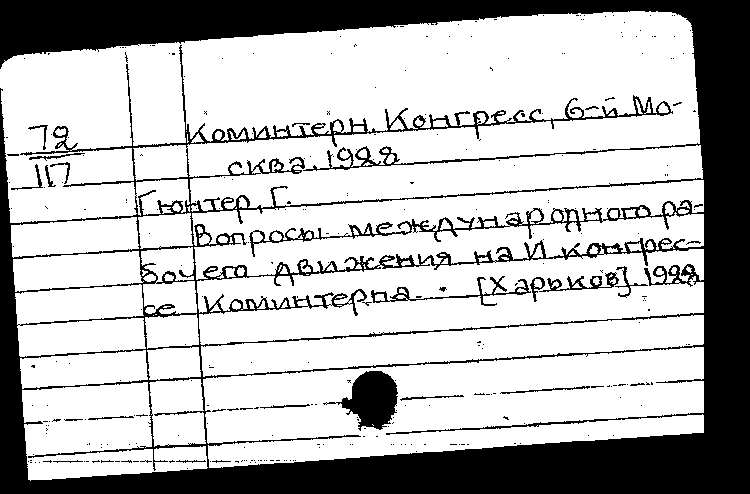 72
1П
Коминтерн. Конгресс, 6-й. Мо-
сква. 1928
Гюнтер, Г.
Вопросы международного ра-
бочего движения на VI конгрес-
се Коминтерна. · [Харьков]. 1928